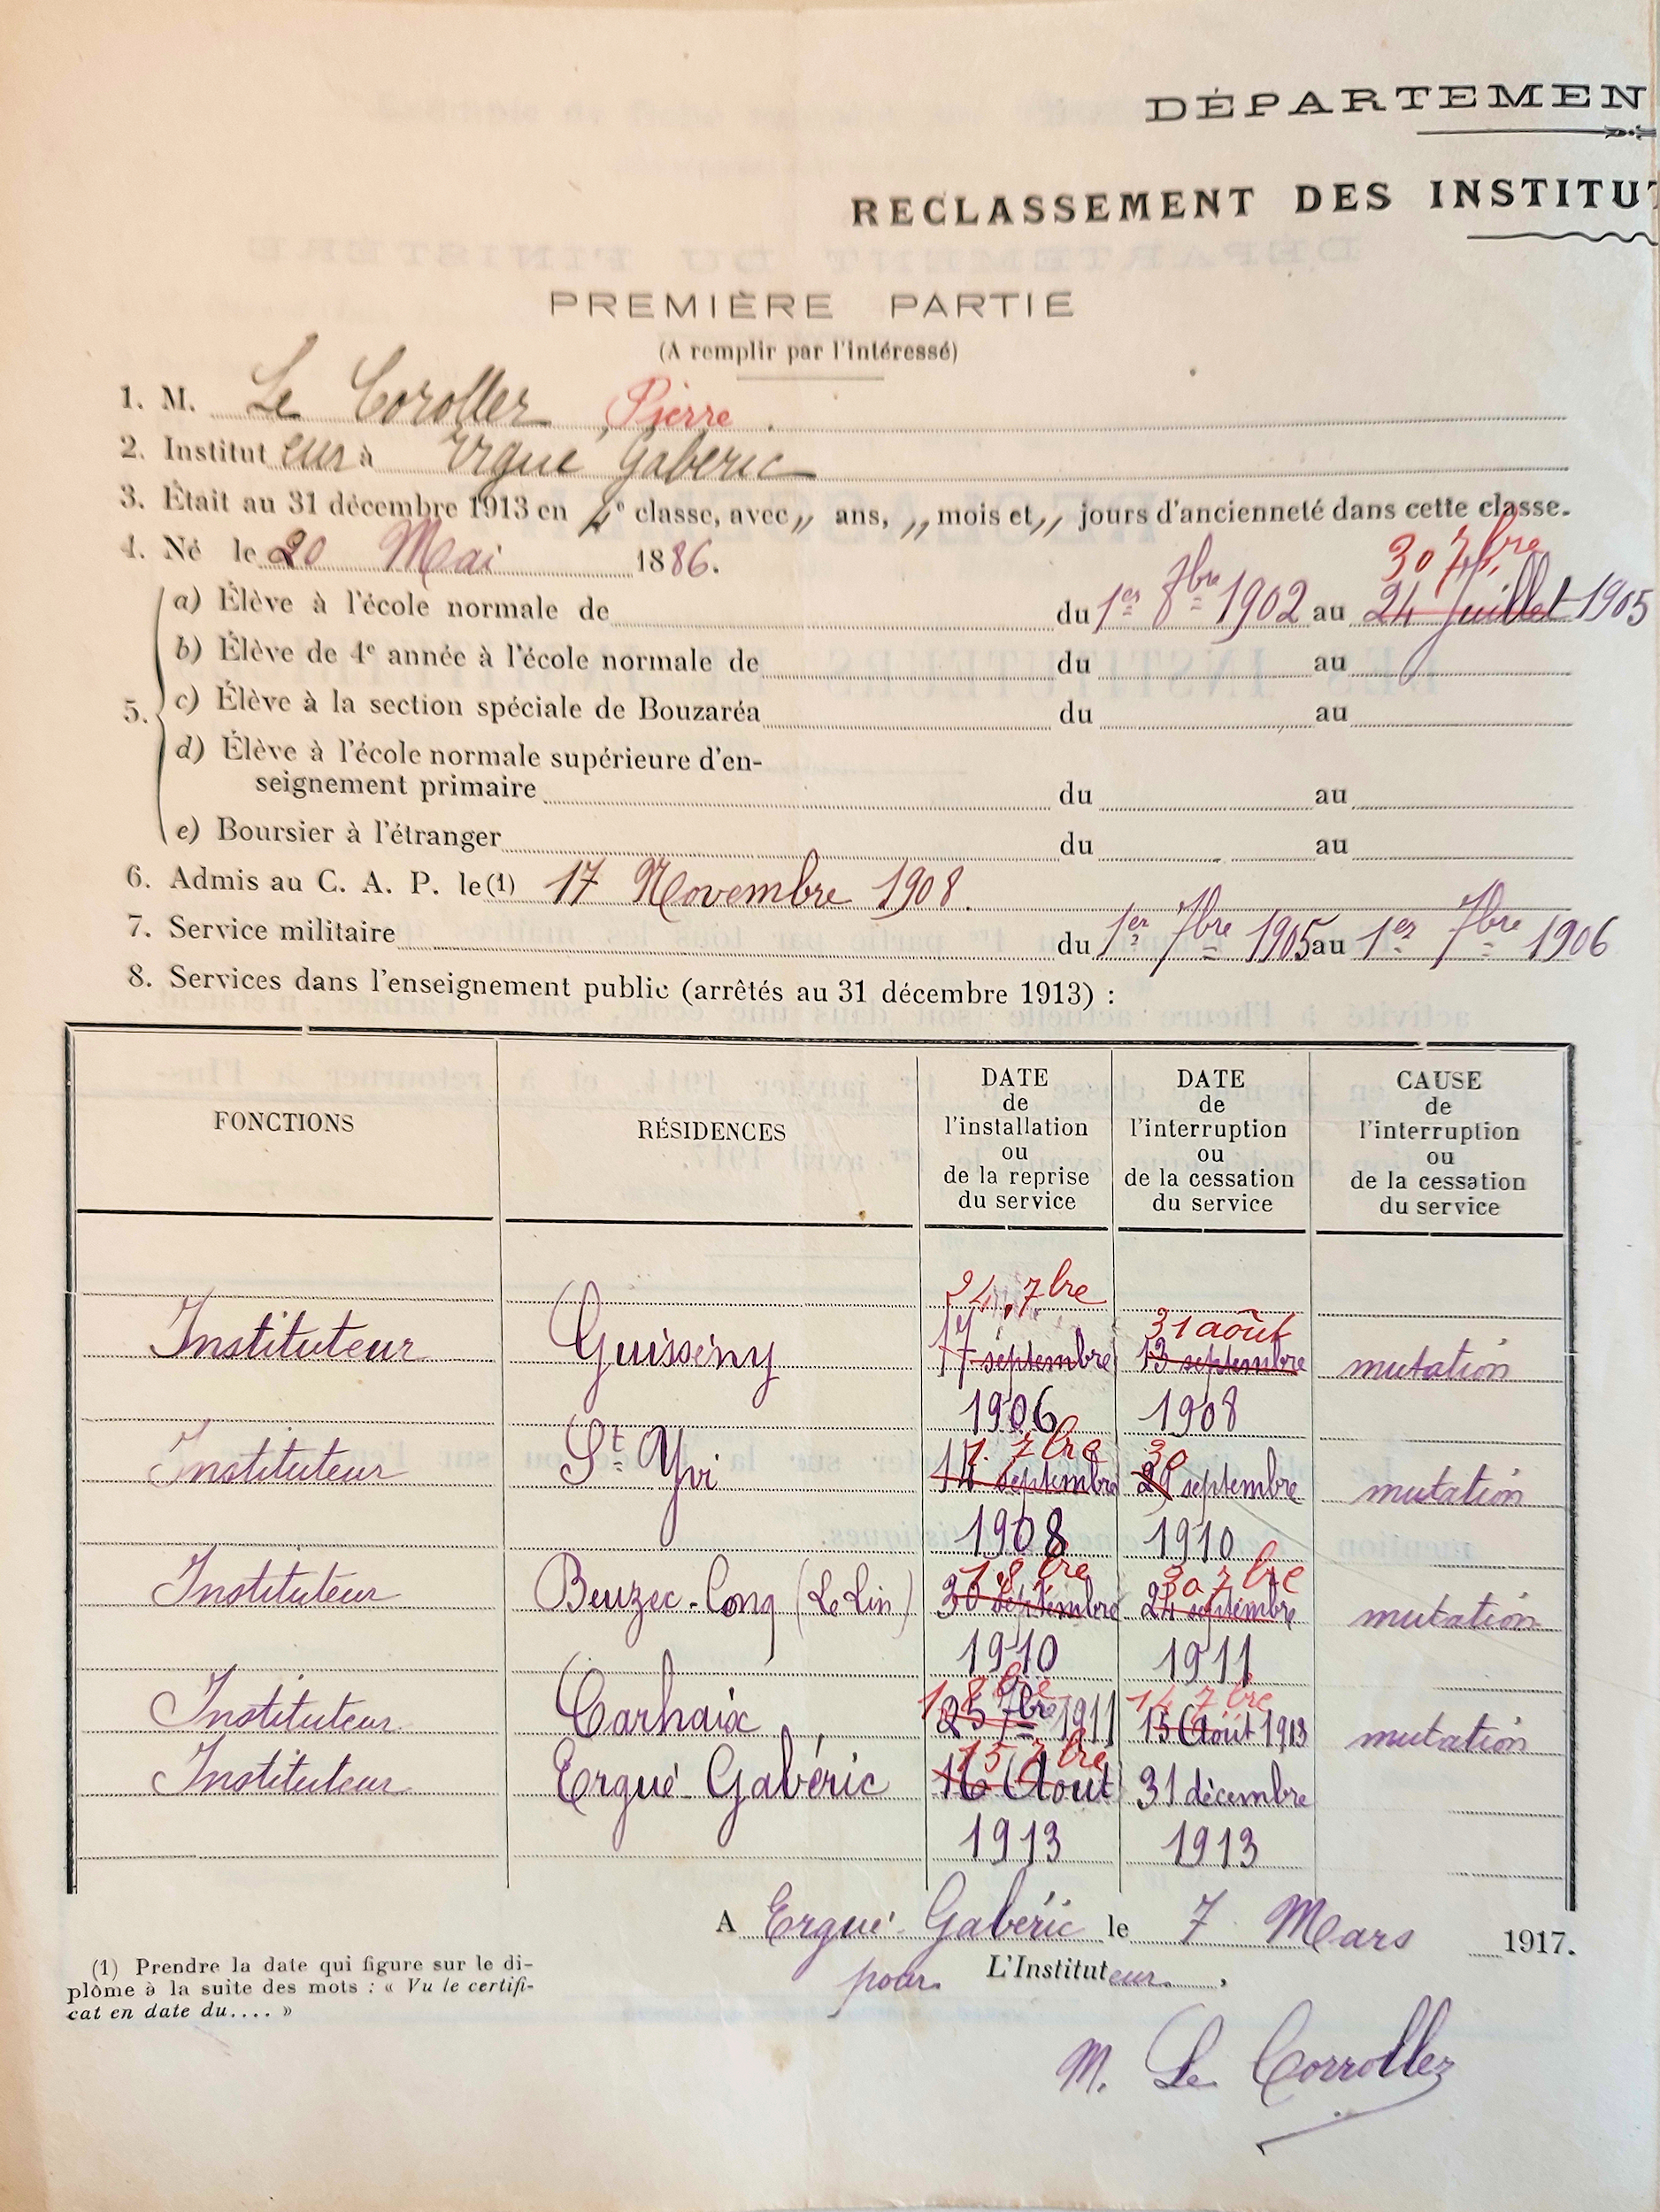 DÉPARTEMEN
RECLASSEMENT DES INSTITUT
PREMIÈRE PARTIE
(A remplir par l'intéressé)
1. M. Le Coroller Pierre.
2. Instituteur à Ergué Gabéric
3. Était au 31 décembre 1913 en 4e classe, avec ,, ans, ,, mois et ,, jours d'ancienneté dans cette classe.
4. Né le 20 Mai 1886.
30 7bre
a) Élève à l'école normale de du 1er 8bre 1902 au 24 Juillet 1905
b) Élève de 4e année à l'école normale de du au
5. c) Élève à la section spéciale de Bouzaréa du au
d) Élève à l'école normale supérieure d'en-
seignement primaire du au
e) Boursier à l'étranger du au
6. Admis au C. A. P. le (1) 17 Novembre 1908.
7. Service militaire du 1er 7bre 1905 au 1er 7bre 1906
8. Services dans l'enseignement public (arrêtés au 31 décembre 1913) :
FONCTIONS
RÉSIDENCES
DATE
de
l'installation
ou
de la reprise
du service
DATE
de
l'interruption
ou
de la cessation
du service
CAUSE
de
l'interruption
ou
de la cessation
du service
24 7bre
31 août
Instituteur Guissény 17 septembre 13 septembre mutation
1906 1908
1. 7bre 30
Instituteur St Yvi 14 septembre septembre mutation
1908 1910
1 8bre 30 7bre
Instituteur Beuzec-Conq (Le Lin) 30 septembre 24 septembre mutation
1910 1911
1 8bre 14 7bre
Instituteur Carhaix 25 7bre 1911 15 Août 1913 mutation
15 7bre
Instituteur Ergué-Gabéric 16 Août 31 décembre
1913 1913
A Ergué-Gabéric le 7 Mars 1917.
pour L'Instituteur,
(1) Prendre la date qui figure sur le di-
plôme à la suite des mots : « Vu le certifi-
cat en date du.... »
M. Le Corroller